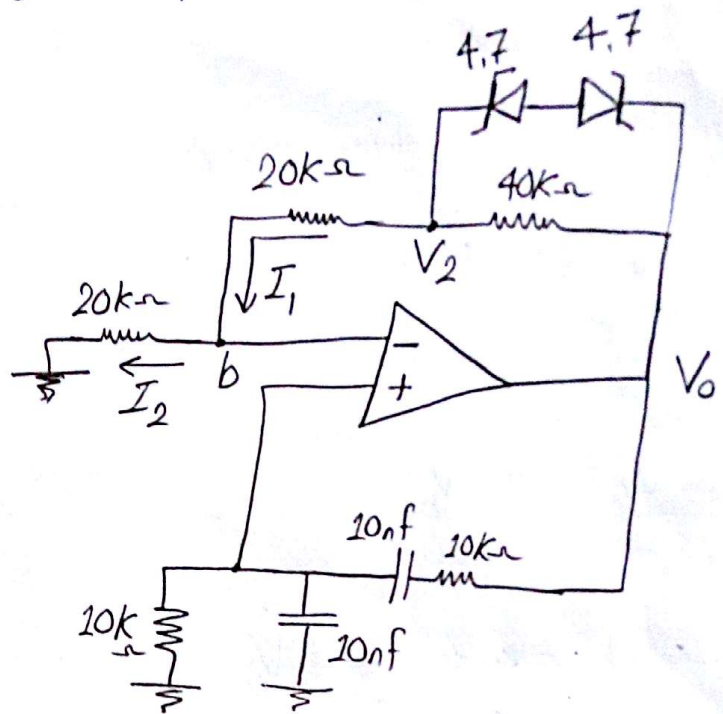 4.7 4.7
20kΩ
40kΩ
V2
I1
20kΩ
b
I2
−
+
V0
10nf
10kΩ
10k
Ω
10nf